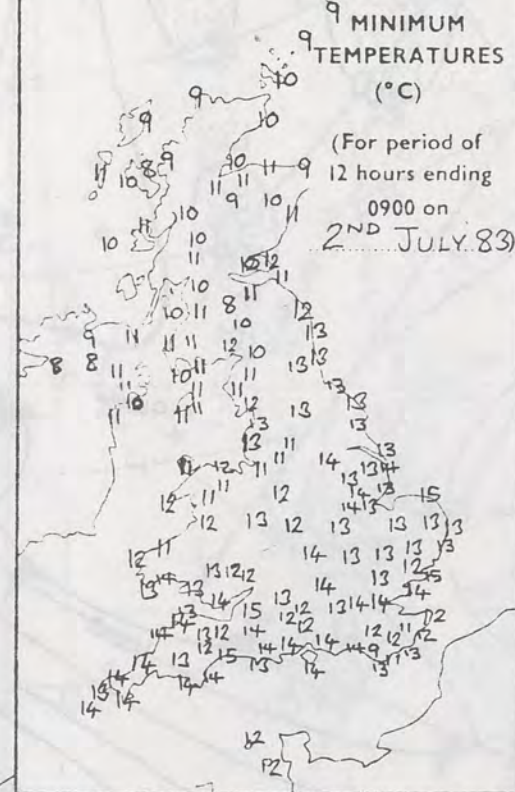 9 MINIMUM
9 TEMPERATURES
10 (°C)
9
10
9
(For period of
12 hours ending
0900 on
2ND JULY 83)
11 10 8 9
10 11 9
11 11
9 10 11
11 10
10 10
11
12
11
10 11
10 11 8 12
10 13
9 11 11 11 12 13
8 8 10
11 10 11 13
11 11 11 13
10 12 13
11 11 11 13 13
13
13 11 13
11 12 11 11 14 13 14
11 13
12 11 12 14 15
14 13
12 13 12 13 13 13 13
12 11 14 13 13 13
12
13 14 13 12 12 13 15
13 14 14 14
15 13 13 14 14
13 12 12 12
14 14 12
14 13 12 14 12 11 12
12 14 14 14 14 9 12
14 13 15 13 14 13 11 13
14 14 14
13 14
14
12
12